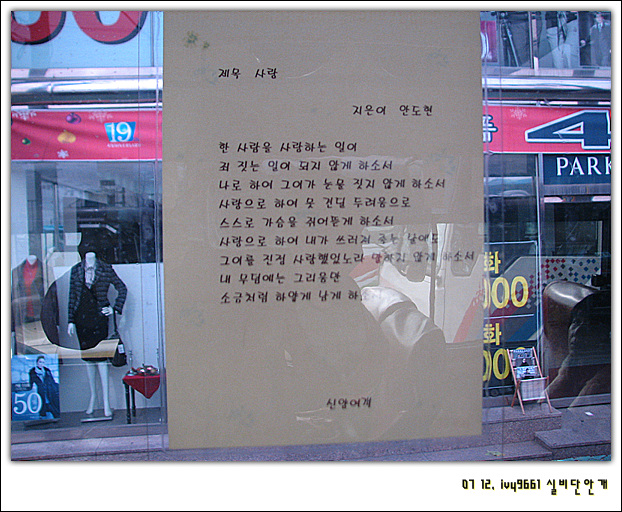 제목 사랑
지은이 안도현
한 사람을 사랑하는 일이
죄 짓는 일이 되지 않게 하소서
나로 하여 그이가 눈물 짓지 않게 하소서
사랑으로 하여 못 견딜 두려움으로
스스로 가슴을 쥐어뜯게 하소서
사랑으로 하여 내가 쓰러져 죽는 날에도
그이를 진정 사랑했었노라 말하지 않게 하소서
내 무덤에는 그리움만
소금처럼 하얗게 남게 하소서
19
ANNIVERSARY
4
PARK
50
화
000
화
000
07 12, ivy9661 실비단안개